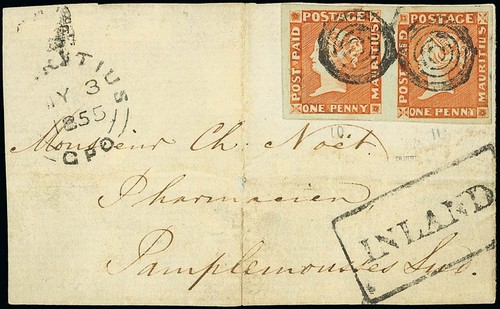 POSTAGE
POST PAID
MAURITIUS
ONE PENNY
POSTAGE
POST PAID
MAURITIUS
ONE PENNY
RITIUS
MY 3
1855
GPO
10.
11
Monsieur Ch: Noël.
Pharmacien
Pamplemousses
INLAND